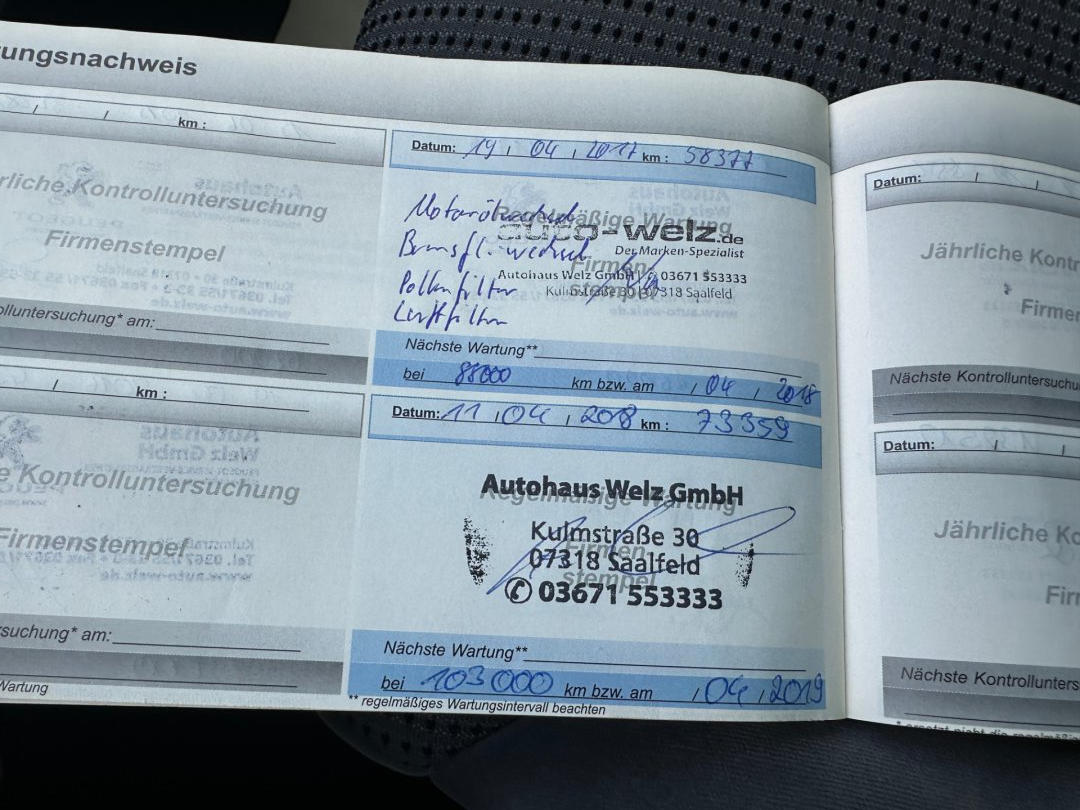 ungsnachweis
/ / km :
rliche Kontrolluntersuchung
Firmenstempel
olluntersuchung* am:
/ km :
e Kontrolluntersuchung
Firmenstempel
rsuchung* am:
Wartung
Datum: 19 / 04 / 2017 km : 58377
Regelmäßige Wartung
Firmen-
stempel
Motorölwechsel
Bremsfl. wechsel
Pollenfilter
Luftfilter
auto-welz.de
Der Marken-Spezialist
Autohaus Welz GmbH ✆ 03671 553333
Kulmstraße 30 07318 Saalfeld
Nächste Wartung**
bei 88000 km bzw. am / 04 / 2018
Datum: 11 / 04 / 2018 km : 73359
Regelmäßige Wartung
Firmen-
stempel
Autohaus Welz GmbH
Kulmstraße 30
07318 Saalfeld
✆ 03671 553333
Nächste Wartung**
bei 103000 km bzw. am / 04 / 2019
** regelmäßiges Wartungsintervall beachten
Datum: / /
Jährliche Kont
Firmen
Nächste Kontrolluntersuchu
Datum: / /
Jährliche Ko
Firn
Nächste Kontrollunters